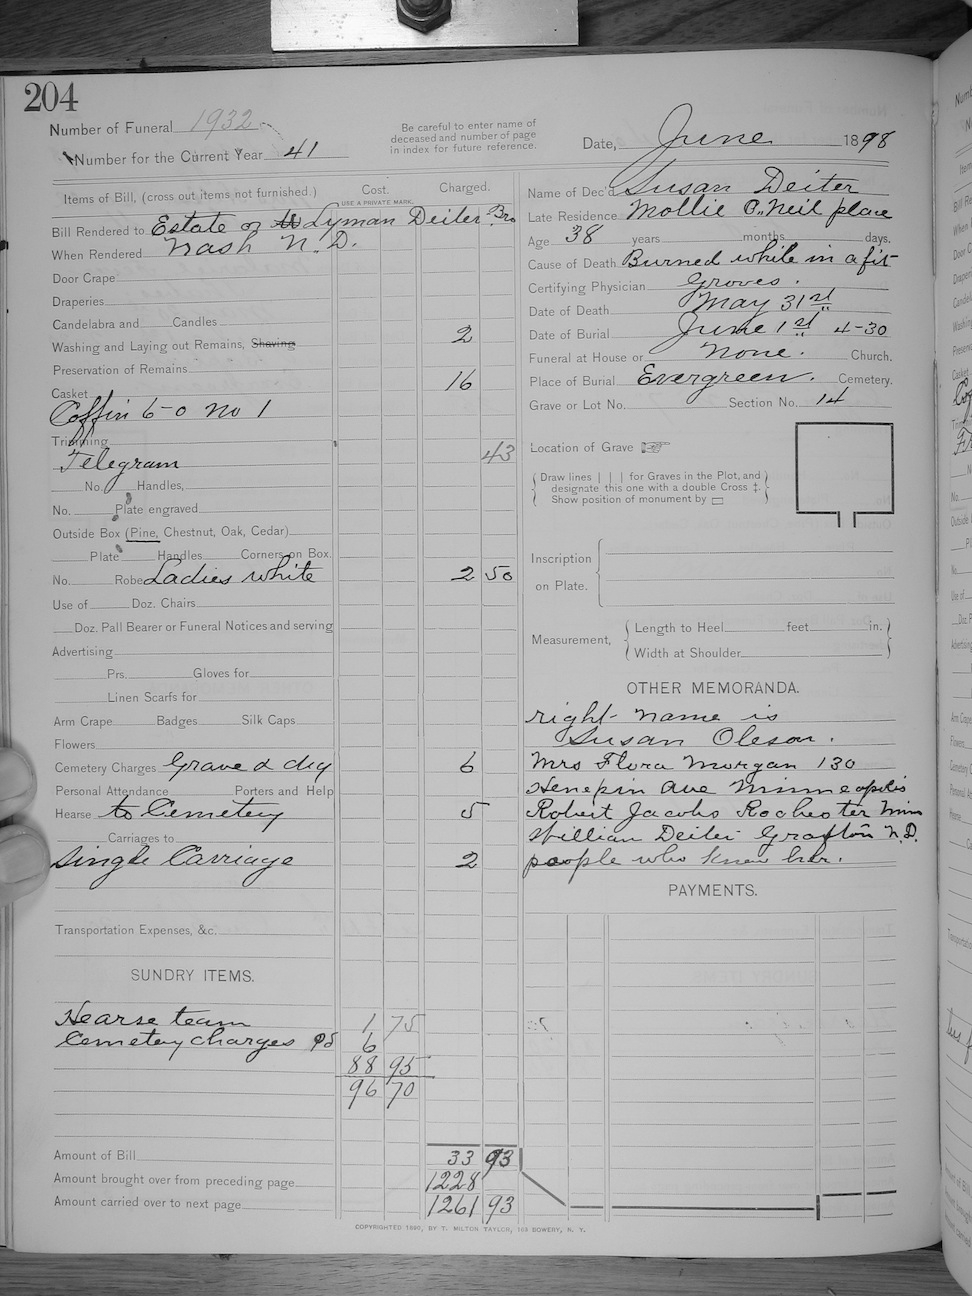 204
Number of Funeral 1932
Number for the Current Year 41
Be careful to enter name of
deceased and number of page
in index for future reference.
Date, June 1898
Items of Bill, (cross out items not furnished.) Cost. Charged.
USE A PRIVATE MARK.
Bill Rendered to Estate of Lyman Deiter Bro
When Rendered Nash N.D.
Door Crape
Draperies
Candelabra and Candles
Washing and Laying out Remains, Shaving 2
Preservation of Remains
Casket 16
Coffin 6-0 no 1
Trimming
Telegram 43
No. Handles,
No. Plate engraved
Outside Box (Pine, Chestnut, Oak, Cedar)
Plate Handles Corners on Box.
No. Robe Ladies white 2 50
Use of Doz. Chairs
Doz. Pall Bearer or Funeral Notices and serving
Advertising
Prs. Gloves for
Linen Scarfs for
Arm Crape Badges Silk Caps
Flowers
Cemetery Charges Grave & dig 6
Personal Attendance Porters and Help
Hearse to Cemetery 5
Carriages to
Single Carriage 2
Transportation Expenses, &c.
SUNDRY ITEMS.
Hearse team 1 75
Cemetery charges Pd 6
88 95
96 70
Amount of Bill 33 93
Amount brought over from preceding page 1228
Amount carried over to next page 1261 93
Name of Dec'd Susan Deiter
Late Residence Mollie O'Neil place
Age 38 years months days.
Cause of Death Burned while in a fit
Certifying Physician Groves.
Date of Death May 31st
Date of Burial June 1st 4-30
Funeral at House or none. Church.
Place of Burial Evergreen. Cemetery.
Grave or Lot No. Section No. 14
Location of Grave
Draw lines | | | for Graves in the Plot, and
designate this one with a double Cross ‡.
Show position of monument by
Inscription
on Plate.
Measurement, Length to Heel feet in.
Width at Shoulder
OTHER MEMORANDA.
right name is
Susan Oleson.
Mrs Flora Morgan 130
Henepin Ave Minneapolis
Robert Jacobs Rochester Minn
William Deiter Grafton N.D.
people who knew her.
PAYMENTS.
COPYRIGHTED 1890, BY T. MILTON TAYLOR, 163 BOWERY, N. Y.